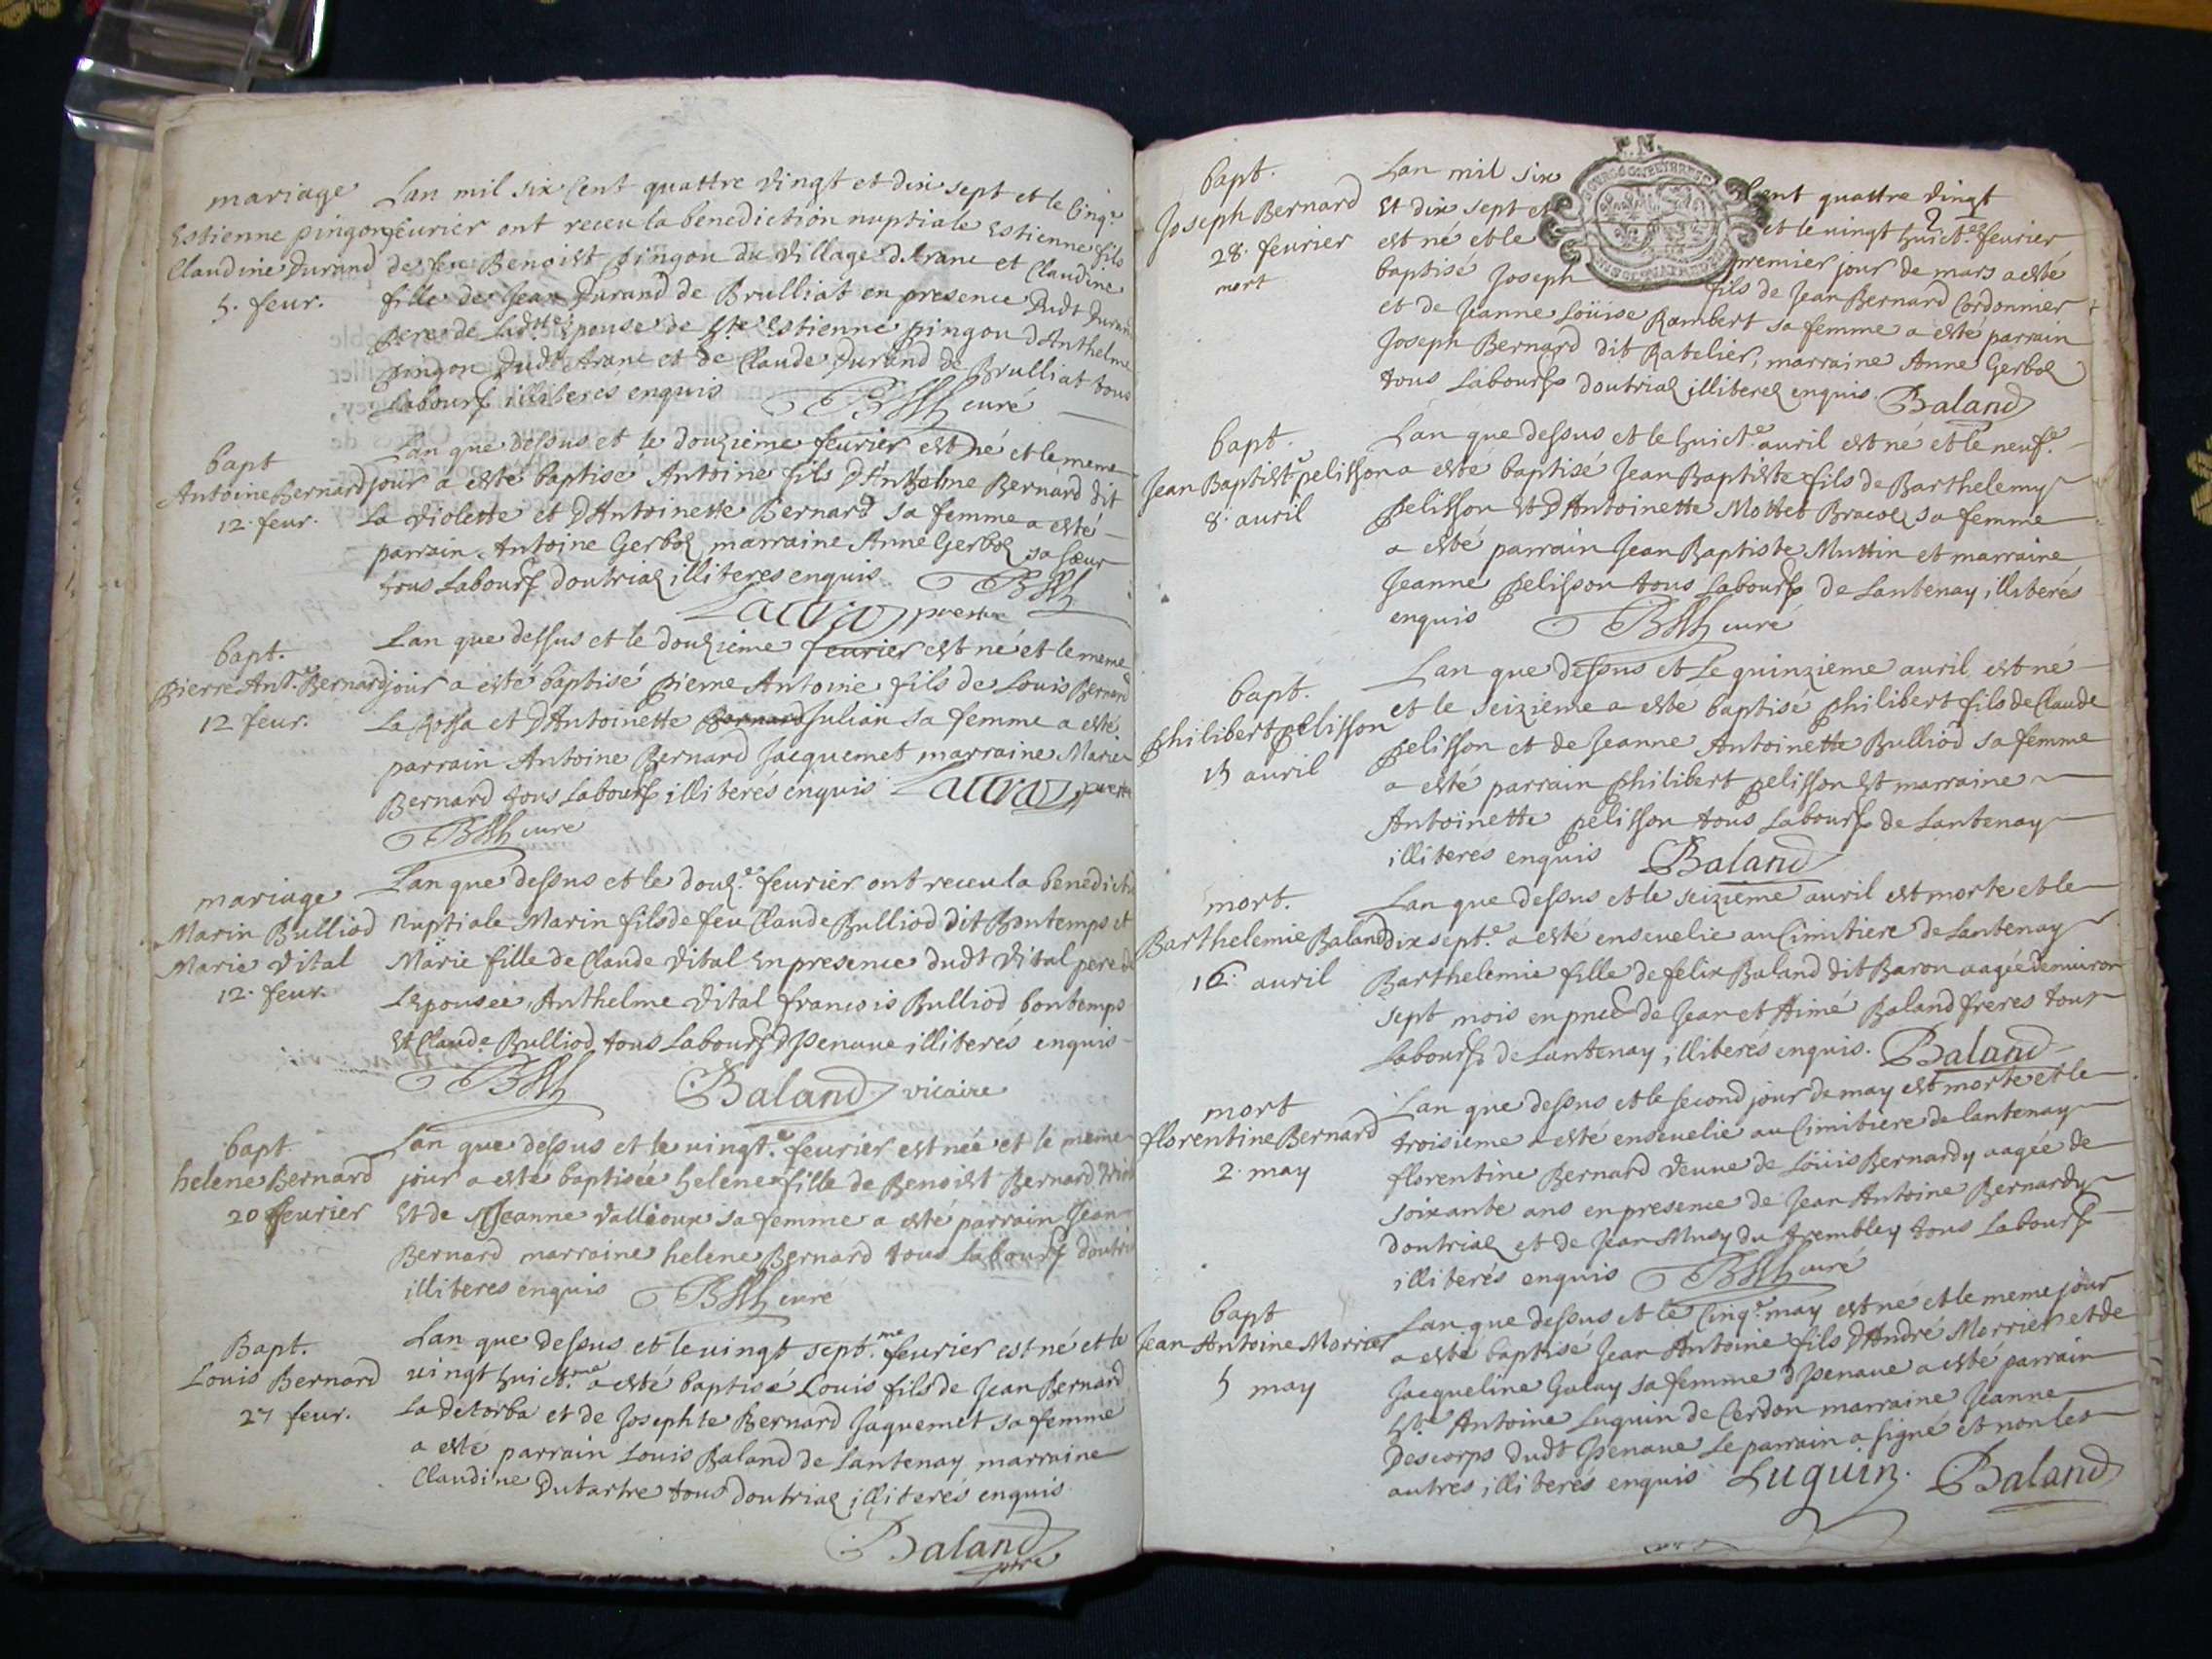 mariage
Estienne pingon
Claudine Durand
5. feur.
Lan mil six Cent quattre vingt et dix sept et le Cinq.e
feurier ont receu la benediction nuptiale Estienne fils
de feu Benoist pingon du village d'Aranc et Claudine
fille de Jean Durand de Brulliat en presence Dudt Durand
pere de Ladtte Epouse de hte Estienne pingon D'Anthelme
pingon Dudt Aranc et de Claude Durand de Brulliat tous
Labours illiteres enquis curé
bapt
Antoine Bernard
12. feur.
Lan que dessus et le douzieme feurier est né et le meme
jour a esté baptisé Antoine fils D'Anthelme Bernard dit
La violette et D'Antoinette Bernard sa femme a esté
parrain Antoine Gerboz marraine Anne Gerboz sa soeur
tous Labours doutriaz illiteres enquis
bapt.
pierre Ant.e Bernard
12 feur.
Lan que dessus et le douzieme feurier est né et le meme
jour a esté baptisé pierre Antoine fils de Louis Bernard
La Rossa et D'Antoinette Bernard Julian sa femme a esté
parrain Antoine Bernard Jacquemet marraine Marie
Bernard tous Labours illiterés enquis
curé
mariage
Marin Bulliod
Marie Vital
12. feur.
Lan que dessus et le douz.e feurier ont receu la benedict
Nuptiale Marin fils de feu Claude Bulliod dit Bontemps et
Marie fille de Claude Vital En presence dudt Vital pere de
L'Epousee, Anthelme Vital francois Bulliod bontemps
Et Claude Bulliod tous Labours d'Isenaue illiterés enquis
Baland vicaire
bapt
helene Bernard
20 feurier
Lan que dessus et le uingt.e feurier est née et le meme
jour a esté baptisée helene fille de Benoist Bernard
Et de Jeanne Vallioux sa femme a esté parrain Jean
Bernard marraine helene Bernard tous Labours doutri
illiteres enquis curé
Bapt.
Louis Bernard
27 feur.
Lan que dessus et le uingt sept.me feurier est né et le
uingt huict.me a esté baptisé Louis fils de Jean Bernard
La Detorba et de Josephte Bernard Jaquemet sa femme
a esté parrain Louis Baland de Lantenay marraine
Claudine Dutartre tous doutriaz illiterés enquis
Baland
ptre
bapt.
Joseph Bernard
28. feurier
mort
Lan mil six Cent quattre vingt
Et dix sept et et le uingt huict.e feurier
est né et le premier jour de mars a esté
baptisé Joseph fils de Jean Bernard Cordonnier
et de Jeanne Loüise Rambert sa femme a esté parrain
Joseph Bernard dit Ratelier, marraine Anne Gerboz
tous Labours doutriaz illiterez enquis. Baland
bapt.
Jean Baptiste pelisson
8. auril
Lan que dessus et le huict.e auril est né et le neuf.e
a esté baptisé Jean Baptiste fils de Barthelemy
pelisson Et D'Antoinette Mottet Bracoz sa femme
a esté parrain Jean Baptiste Muttin et marraine
Jeanne pelisson tous Labours de Lantenay illiterés
enquis curé
bapt.
philibert pelisson
15 auril
Lan que dessus et le quinzieme auril est né
et le seizieme a esté baptisé philibert fils de Claude
pelisson et de Jeanne Antoinette Bulliod sa femme
a esté parrain philibert pelisson Et marraine
Antoinette pelisson tous Labours de Lantenay
illiterés enquis Baland
mort.
Barthelemie Baland
16. auril
Lan que dessus et le seizieme auril est morte et le
dix sept.e a esté enseuelie au Cimitiere de Lantenay
Barthelemie fille de felix Baland dit Baron aagée denuiron
sept mois en pnce de Jean et Aimé Baland freres tous
Labours de Lantenay, illiteres enquis. Baland
mort
florentine Bernard
2. may
Lan que dessus et le second jour de may est morte et le
troisieme a esté enseuelie au Cimitiere de lantenay
florentine Bernard Veuue de Loüis Bernardy aagée de
soixante ans en presence de Jean Antoine Bernardy
doutriaz et de Jean Musy du trembley tous Labours
illiterés enquis curé
bapt
Jean Antoine Morrier
5 may
Lan que dessus et le Cinq.e may est né et le meme jour
a esté baptisé Jean Antoine fils D'André Morrier et de
Jacqueline Galay sa femme d'Isenaue a esté parrain
hte Antoine Luguin de Cerdon marraine Jeanne
Descorps dudt Isenaue Le parrain a signé et non les
autres illiterés enquis Luguin. Baland